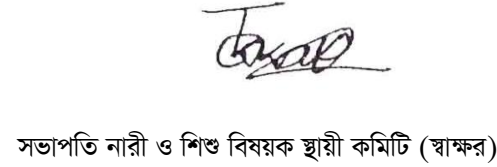 সভাপতি নারী ও শিশু বিষয়ক স্থায়ী কমিটি (স্বাক্ষর)